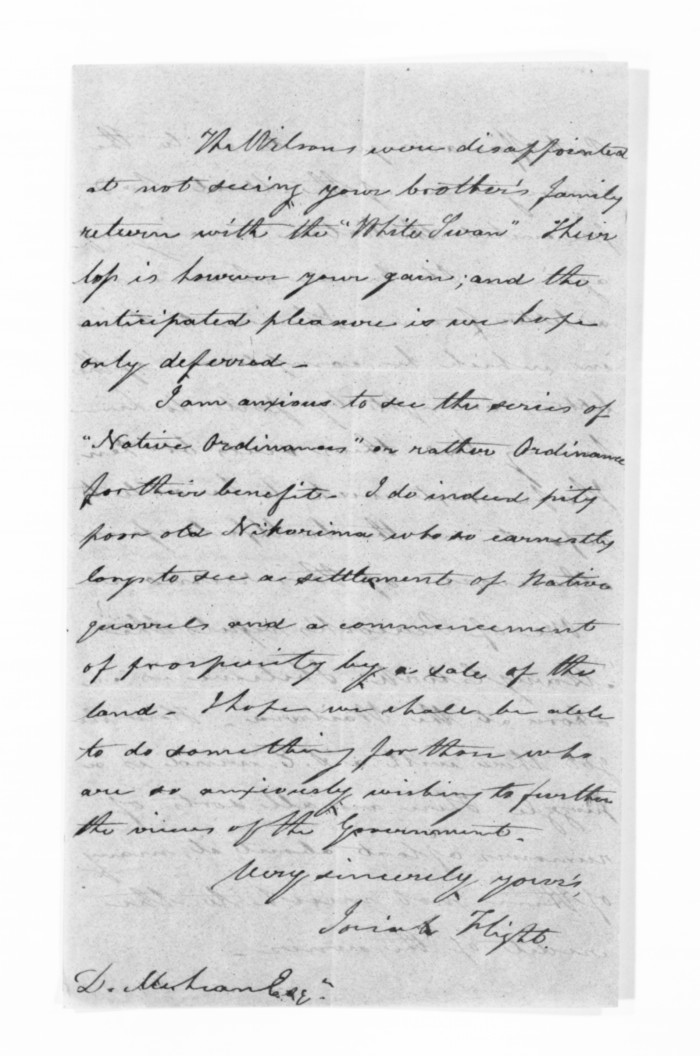 The Wilsons were disappointed
at not seeing your brother's family
return with the "White Swan" Their
loss is however your gain; and the
anticipated pleasure is we hope
only deferred -
I am anxious to see the series of
"Native Ordinances" or rather Ordinance
for their benefit - I do indeed pity
poor old Nikorima who so earnestly
longs to see a settlement of Native
quarrels and a commencement
of prosperity by a sale of the
land - I hope we shall be able
to do something for those who
are so anxiously wishing to further
the views of the Government -
Very sincerely yours
Josiah Flight.
D. McLean Esqr.